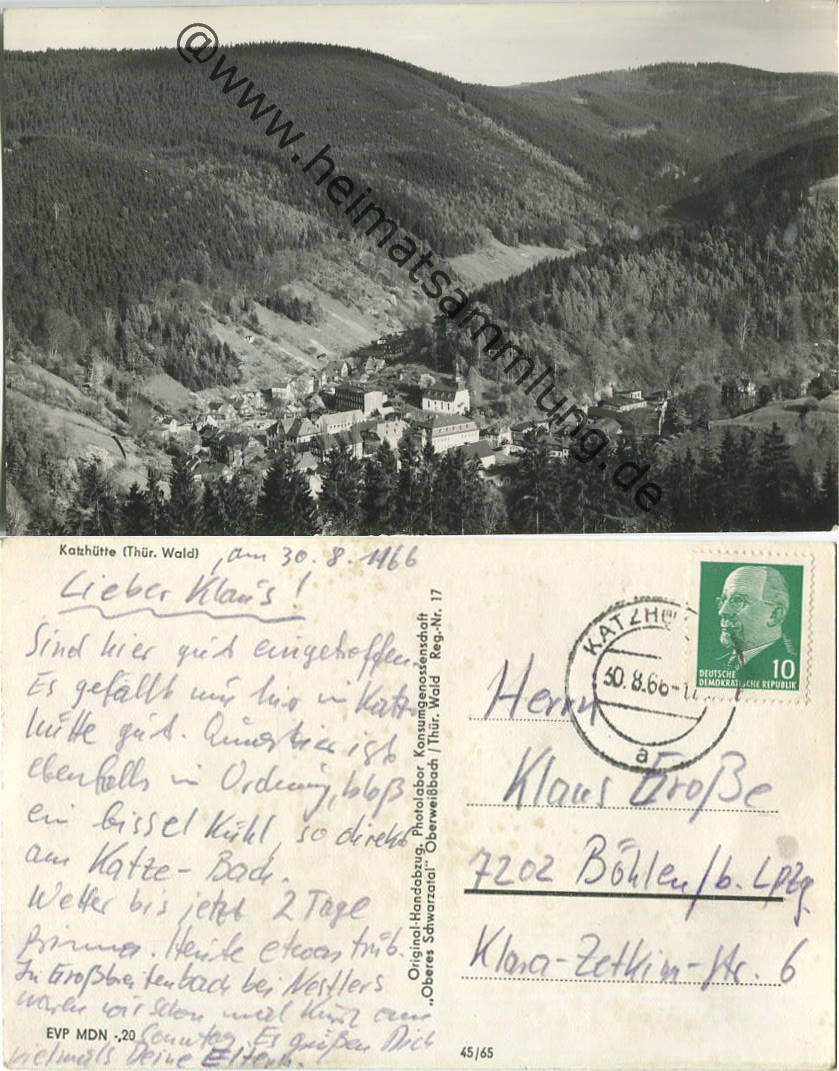 @www.heimatsammlung.de
Katzhütte (Thür. Wald)
am 30.8.1966
Lieber Klaus!
Sind hier gut eingetroffen.
Es gefällt mir hier in Katz-
hütte gut. Quartier ist
ebenfalls in Ordnung, bloß
ein bissel Kühl, so direkt
am Katze-Bach.
Wetter bis jetzt 2 Tage
prima. Heute etwas trüb.
In Großbreitenbach bei Nestlers
waren wir schon mal kurz am
EVP MDN -,20 Sonntag. Es grüßen Dich
vielmals Deine Eltern.
Original-Handabzug, Photolabor Konsumgenossenschaft
„Oberes Schwarzatal" Oberweißbach/Thür. Wald Reg.-Nr. 17
45/65
KATZHÜ
30.8.66-17
a
DEUTSCHE
DEMOKRATISCHE REPUBLIK
10
Herrn
Klaus Große
7202 Böhlen/b. Lpzg.
Klara-Zetkin-Str. 6